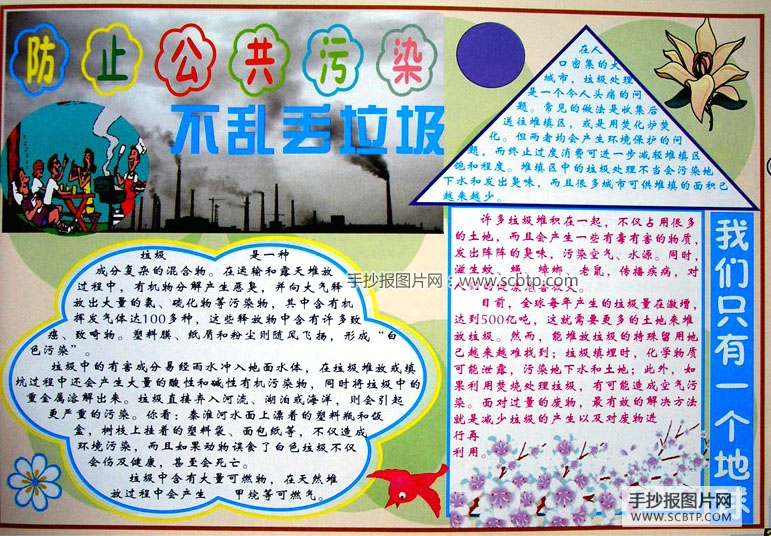 防止公共污染
不乱丢垃圾
在人
口密集的大
城市，垃圾处理
是一个令人头痛的问
题。常见的做法是收集后
送往堆填区，或是用焚化炉焚
化。但两者均会产生环境保护的问
题，而终止过度消费可进一步减轻堆填区
饱和程度。堆填区中的垃圾处理不当会污染地
下水和发出臭味，而且很多城市可供堆填的面积已
越来越少。
垃圾 是一种
成分复杂的混合物。在运输和露天堆放
过程中，有机物分解产生恶臭，并向大气释
放出大量的氨、硫化物等污染物，其中含有机
挥发气体达100多种，这些释放物中含有许多致
癌、致畸物。塑料膜、纸屑和粉尘则随风飞扬，形成“白
色污染”。
垃圾中的有害成分易经雨水冲入地面水体，在垃圾堆放或填
坑过程中还会产生大量的酸性和碱性有机污染物，同时将垃圾中的
重金属溶解出来。垃圾直接弃入河流、湖泊或海洋，则会引起
更严重的污染。你看：秦淮河水面上漂着的塑料瓶和饭
盒，树枝上挂着的塑料袋、面包纸等，不仅造成
环境污染，而且如果动物误食了白色垃圾不仅
会伤及健康，甚至会死亡。
垃圾中含有大量可燃物，在天然堆
放过程中会产生 甲烷等可燃气。
许多垃圾堆积在一起，不仅占用很多
的土地，而且会产生一些有毒有害的物质，
发出阵阵的臭味，污染空气、水源。同时，
滋生蚊、蝇、蟑螂、老鼠，传播疾病，对
目前，全球每年产生的垃圾量在激增，
达到500亿吨，这就需要更多的土地来堆
放垃圾。然而，能堆放垃圾的特殊留用地
已越来越难找到；垃圾填埋时，化学物质
可能泄露，污染地下水和土地；此外，如
果利用焚烧处理垃圾，有可能造成空气污
染。面对过量的废物，最有效的解决方法
就是减少垃圾的产生以及对废物进
行再
利用。
我们只有一个地球
手抄报图片网：www.scbtp.com
手抄报图片网
WWW.SCBTP.COM